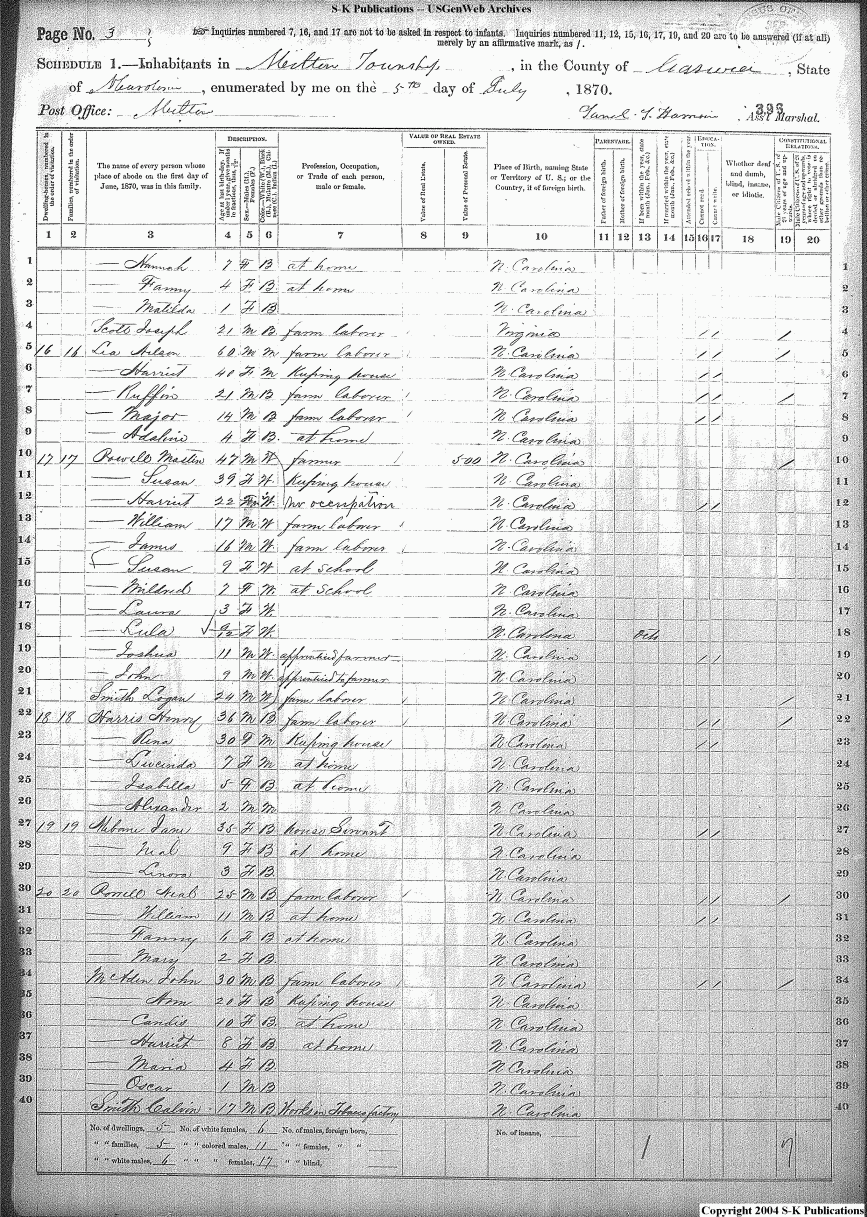 S-K Publications -- USGenWeb Archives
Page No. 3
Inquiries numbered 7, 16, and 17 are not to be asked in respect to infants. Inquiries numbered 11, 12, 15, 16, 17, 19, and 20 are to be answered (if at all)
merely by an affirmative mark, as /.
SCHEDULE 1.—Inhabitants in Milton Township, in the County of Caswell, State
of N Carolina, enumerated by me on the 5th day of July, 1870.
Post Office: Milton
393
Ass't Marshal.
DESCRIPTION. VALUE OF REAL ESTATE OWNED. PARENTAGE. EDUCATION. CONSTITUTIONAL RELATIONS.
Dwelling-houses, numbered in the order of visitation. Families, numbered in the order of visitation. The name of every person whose place of abode on the first day of June, 1870, was in this family. Profession, Occupation, or Trade of each person, male or female. Value of Real Estate. Value of Personal Estate. Place of Birth, naming State or Territory of U. S.; or the Country, if of foreign birth. Father of foreign birth. Mother of foreign birth. Whether deaf and dumb, blind, insane, or idiotic.
1 2 3 4 5 6 7 8 9 10 11 12 13 14 15 16 17 18 19 20
1 — Hannah 7 F B at home N Carolina 1
2 — Fanny 4 F B at home N Carolina 2
3 — Matilda 1 F B N Carolina 3
4 Scott Joseph 21 M B farm laborer Virginia / / / 4
5 16 16 Lea Nelson 60 M M farm laborer N. Carolina / / / 5
6 — Harriet 40 F M Keeping house N. Carolina / / 6
7 — Ruffin 21 M B farm laborer N. Carolina / / / 7
8 — Major 14 M B farm laborer N. Carolina / / 8
9 — Adaline 4 F B at home N. Carolina 9
10 17 17 Powell Mastin 47 M W farmer 500 N. Carolina / 10
11 — Susan 39 F W Keeping house N Carolina 11
12 — Harriet 22 F W no occupation N Carolina / / 12
13 — William 17 M W farm laborer N Carolina 13
14 — James 16 M W farm laborer N Carolina 14
15 — Susan 9 F W at School N. Carolina 15
16 — Mildred 7 F W at School N. Carolina 16
17 — Laura 3 F W N. Carolina 17
18 — Lula 9/12 F W N. Carolina Oct 18
19 — Joshua 11 M W apprenticed farmer N. Carolina / / 19
20 — John 9 M W apprenticed to farmer N. Carolina 20
21 Smith Logan 24 M W farm laborer N. Carolina / 21
22 18 18 Harris Henry 36 M B farm laborer N. Carolina / / / 22
23 — Rena 30 F M Keeping house N. Carolina / / 23
24 — Lucinda 7 F M at home N. Carolina 24
25 — Isabella 5 F B at home N. Carolina 25
26 — Alexander 2 M M N. Carolina 26
27 19 19 Mebane Jane 35 F B house Servant N. Carolina / / 27
28 — Neal 9 F B at home N. Carolina 28
29 — Linora 3 F B N. Carolina 29
30 20 20 Powell Neal 25 M B farm laborer N. Carolina / / / 30
31 — William 11 M B at home N. Carolina / / 31
32 — Fanny 6 F B at home N. Carolina 32
33 — Mary 2 F B N. Carolina 33
34 McAden John 30 M B farm laborer N. Carolina / / / 34
35 — Ann 20 F B Keeping house N. Carolina 35
36 — Candis 10 F B at home N. Carolina 36
37 — Harriet 8 F B at home N. Carolina 37
38 — Maria 4 F B N Carolina 38
39 — Oscar 1 M B N. Carolina 39
40 Smith Calvin 17 M B Works in Tobacco factory N. Carolina 40
No. of dwellings, 5 No. of white females, 6 No. of males, foreign born, No. of insane, 1 7
" " families, 5 " " colored males, 11 " " females, " "
" " white males, 6 " " " females, 17 " " blind,
Copyright 2004 S-K Publications